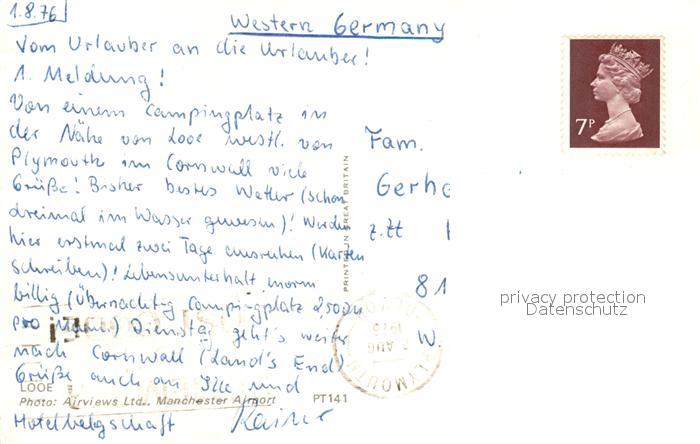 1.8.76
Western Germany
Vom Urlauber an die Urlauber!
1. Meldung!
Von einem Campingplatz in
der Nähe von Looe westl. von
Plymouth im Cornwall viele
Grüße! Bisher bestes Wetter (schon
dreimal im Wasser gewesen)! Werden
hier erstmal zwei Tage ausruhen (Karten
schreiben)! Lebensunterhalt enorm
billig (Übernachtg Campingplatz 2,50DM
pro Mann) Dienstag geht's weiter
nach Cornwall (Land's End)
Grüße auch an Ilse und
Hotelbelegschaft
Fam.
Gerh
z.Zt
81
W.
7P
PRINTED IN GREAT BRITAIN
PLYMOUTH
AUG
1976
LOOE
Photo: Airviews Ltd., Manchester Airport PT141
privacy protection
Datenschutz